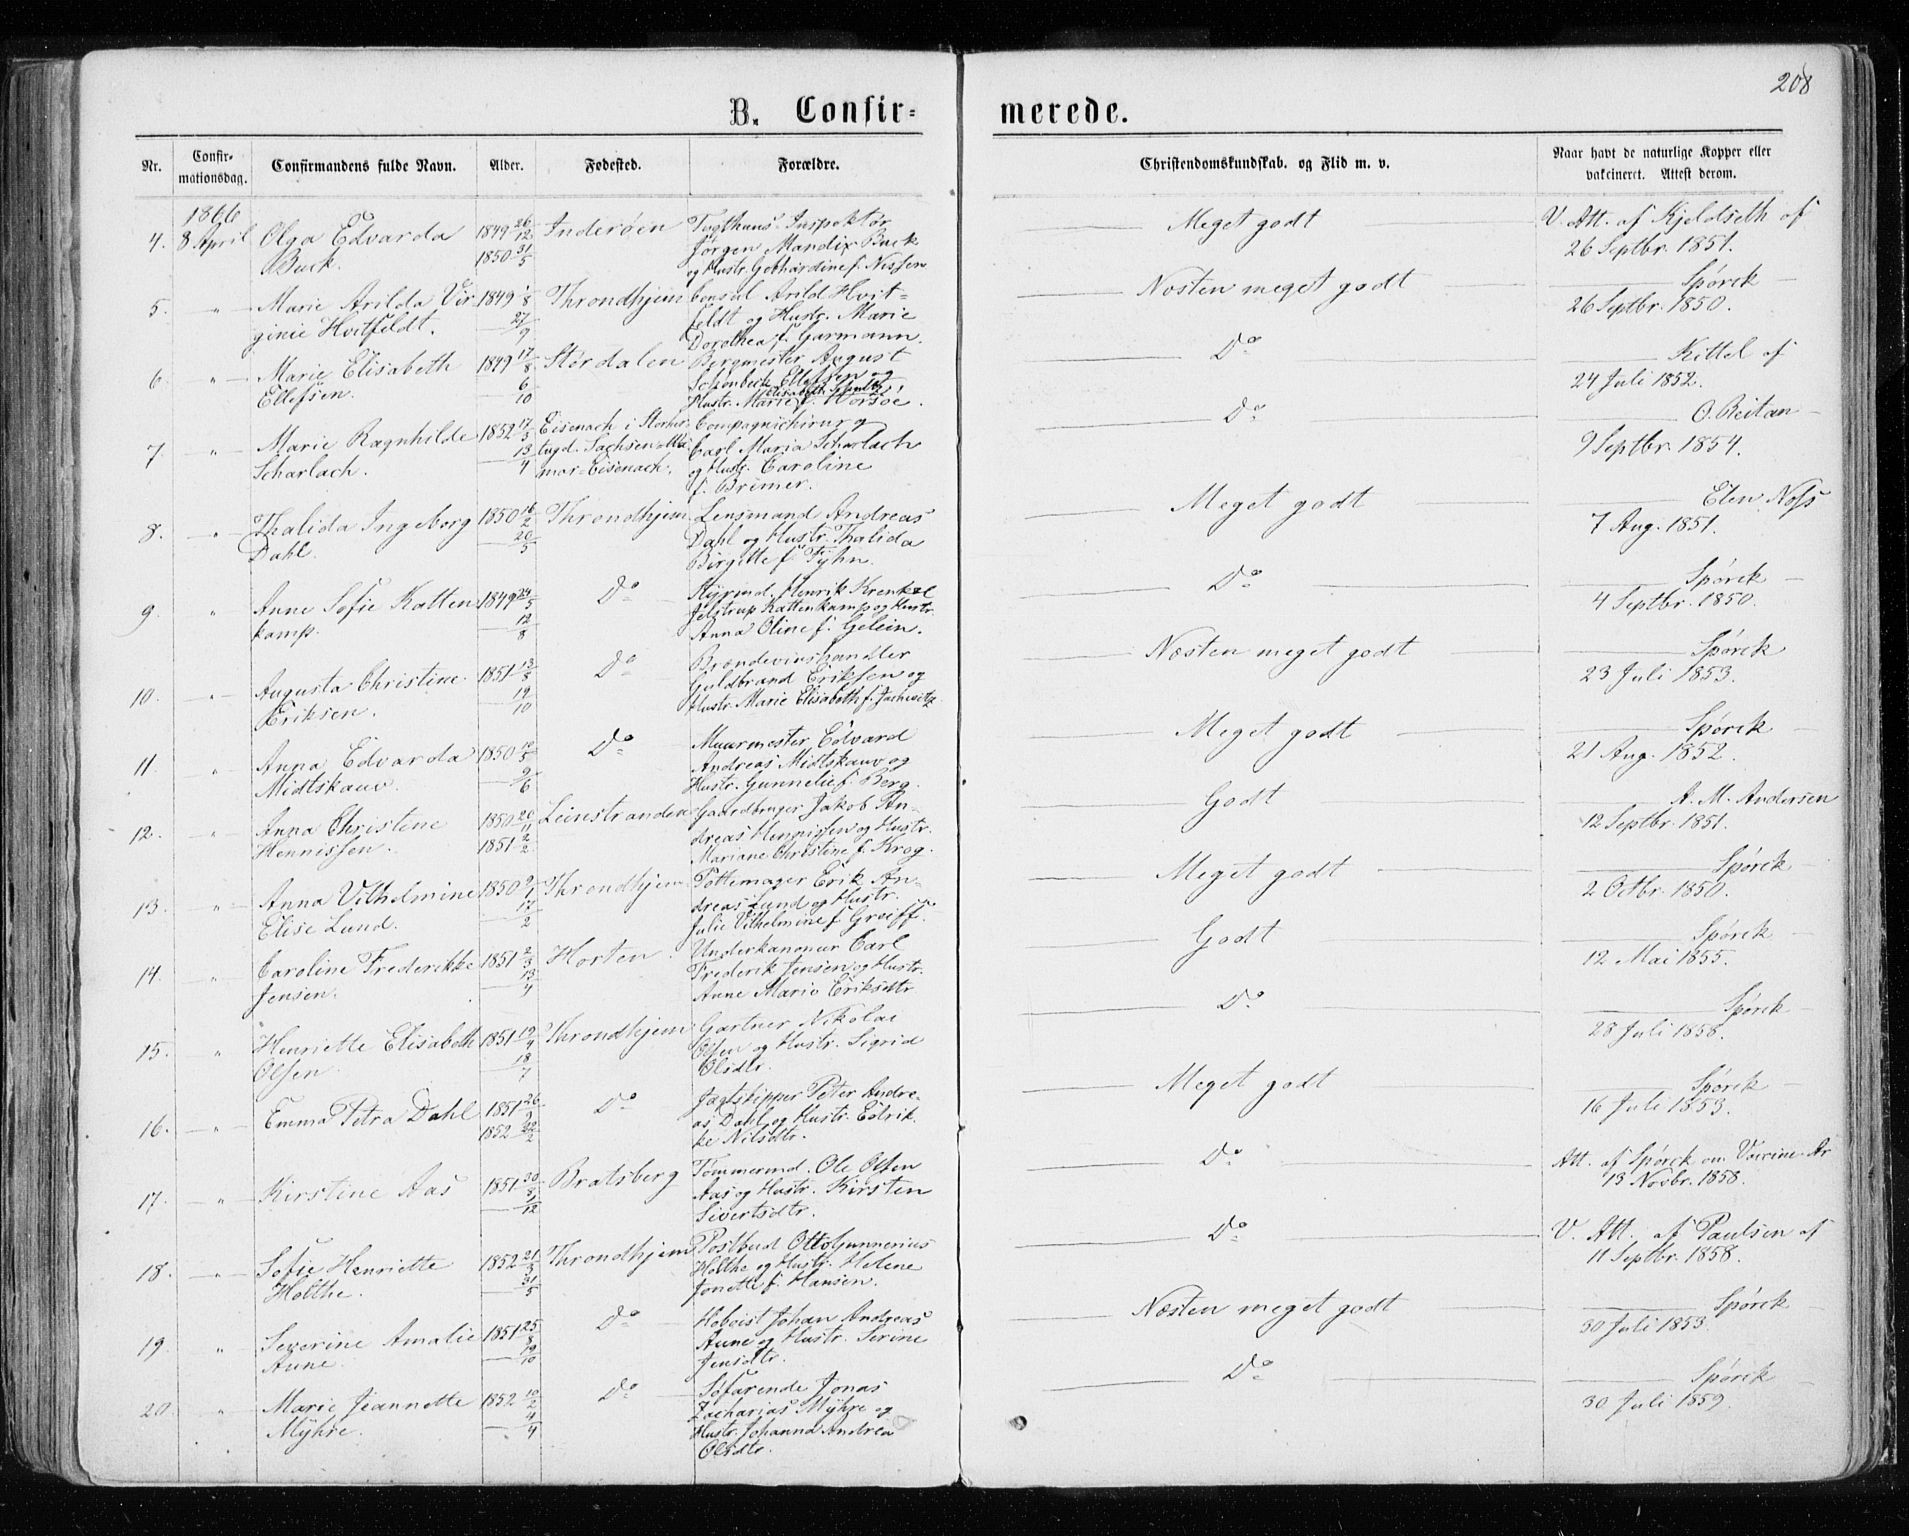 208
B. Confir= merede.
Nr. Confir- mationsdag. Confirmandens fulde Navn. Alder. Fødested. Forældre. Christendomskundskab. og Flid m. v. Naar havt de naturlige Kopper eller vakcineret. Attest derom.
1866
4. 8 April Olga Edvarda Buck. 1849 26/12 1850 31/5 Inderøen Tugthus Inspektør
Jørgen Mandix Buck
og Hustr. Gebhardine f. Nissen
Meget godt V. Att. af Kjeldseth af
26 Septbr. 1851.
5. " Marie Arilda Vir
ginie Hvitfeldt. 1849 1/8 27/9 Throndhjem Consul Arild Hvit=
feldt og Hustr. Marie
Dorothea f. Garmann.
Næsten meget godt Spørck
26 Septbr. 1850.
6. " Marie Elisabeth
Ellefsen. 1849 17/8 6/10 Størdalen Bergmester August
Schönbeck Ellefsen og
Hustr. Marie Elisabeth Schultz f. Worsøe.
Do Kittel af
24 Juli 1852.
7 " Marie Ragnhilde
Scharlach. 1852 17/3 13/4 Eisenach i Storher
tugd. Sachsen-Wei
mar-Eisenach. Compagnichirurg
Carl Maria Scharlach
og Hustr. Caroline
f. Brimer.
Do O. Reitan
9 Septbr. 1854.
8. " Thalida Ingeborg
Dahl. 1850 16/2 20/5 Throndhjem Lensmand Andreas
Dahl og Hustr. Thalida
Birgitte f. Tyhn.
Meget godt Elen Noss
7 Aug. 1851.
9. " Anne Sofie Katten
kamp. 1849 24/5 12/8 Do Styrmd. Henrik Krenkel
Jelstrup Kattenkamp og Hustr.
Anna Oline f. Gelein.
Do Spørck
4 Septbr. 1850.
10. " Augusta Christine
Eriksen. 1851 13/8 19/10 Do Brændevinshandler
Guldbrand Eriksen og
Hustr. Marie Elisabeth f. Jachwitz
Næsten meget godt Spørck
23 Juli 1853.
11. " Anna Edvarda
Midtskauv. 1850 12/5 9/6 Do Muurmester Edvard
Andreas Midtskauv og
Hustr. Gunnelie f. Berg.
Meget godt Spørck
21 Aug. 1852.
12. " Anna Christine
Hennissen. 1850 20/11 1851 2/2 Leinstranden Gaardbruger Jakob An-
dreas Hennissen og Hustr.
Mariane Christine f. Krog.
Godt A. M. Andersen
12 Septbr. 1851.
13. " Anna Vilhelmine
Elise Lund. 1850 9/1 17/2 Throndhjem Pottemager Erik An-
dreas Lund og Hustr.
Julie Vilhelmine f. Greiff.
Meget godt Spørck
2 Octbr. 1850.
14. " Caroline Frederikke
Jensen. 1851 2/3 13/4 Horten Underkanoneer Carl
Frederik Jensen og Hustr.
Anne Marie Eriksdtr
Godt Spørck
12 Mai 1855.
15. " Henriette Elisabeth
Olsen. 1851 19/4 18/7 Throndhjem Gartner Nikolai
Olsen og Hustr. Sigrid
Olsdtr.
Do Spørck
28 Juli 1858.
16. " Emma Petra Dahl 1851 26/9 1852 22/2 Do Jagtskipper Peter Andre-
as Dahl og Hustr. Edrik
ke Nilsdtr.
Meget godt Spørck
16 Juli 1853.
17. " Kirstine Aas 1851 30/8 1/12 Bratsberg Tømmermd. Ole Olsen
Aas og Hustr. Kirsten
Sivertsdtr.
Do Att. af Spørck om Vaccine Ar
13 Novbr. 1858.
18. " Sofie Henriette
Holthe. 1852 21/3 31/5 Throndhjem Postbud Otto Gunnerius
Holthe og Hustr. Helene
Jonette f. Hansen.
Do V. Att. af Paulsen af
11 Septbr. 1858.
19. " Severine Amalie
Aune. 1851 25/8 19/10 Do Hoboist Johan Andreas
Aune og Hustr. Serine
Jensdtr.
Næsten meget godt Spørck
30 Juli 1853.
20. " Marie Jeannette
Myhre. 1852 10/2 4/4 Do Søfarende Jonas
Zacharias Myhre og
Hustr. Johanna Andrea
Olsdtr.
Do Spørck
30 Juli 1859.